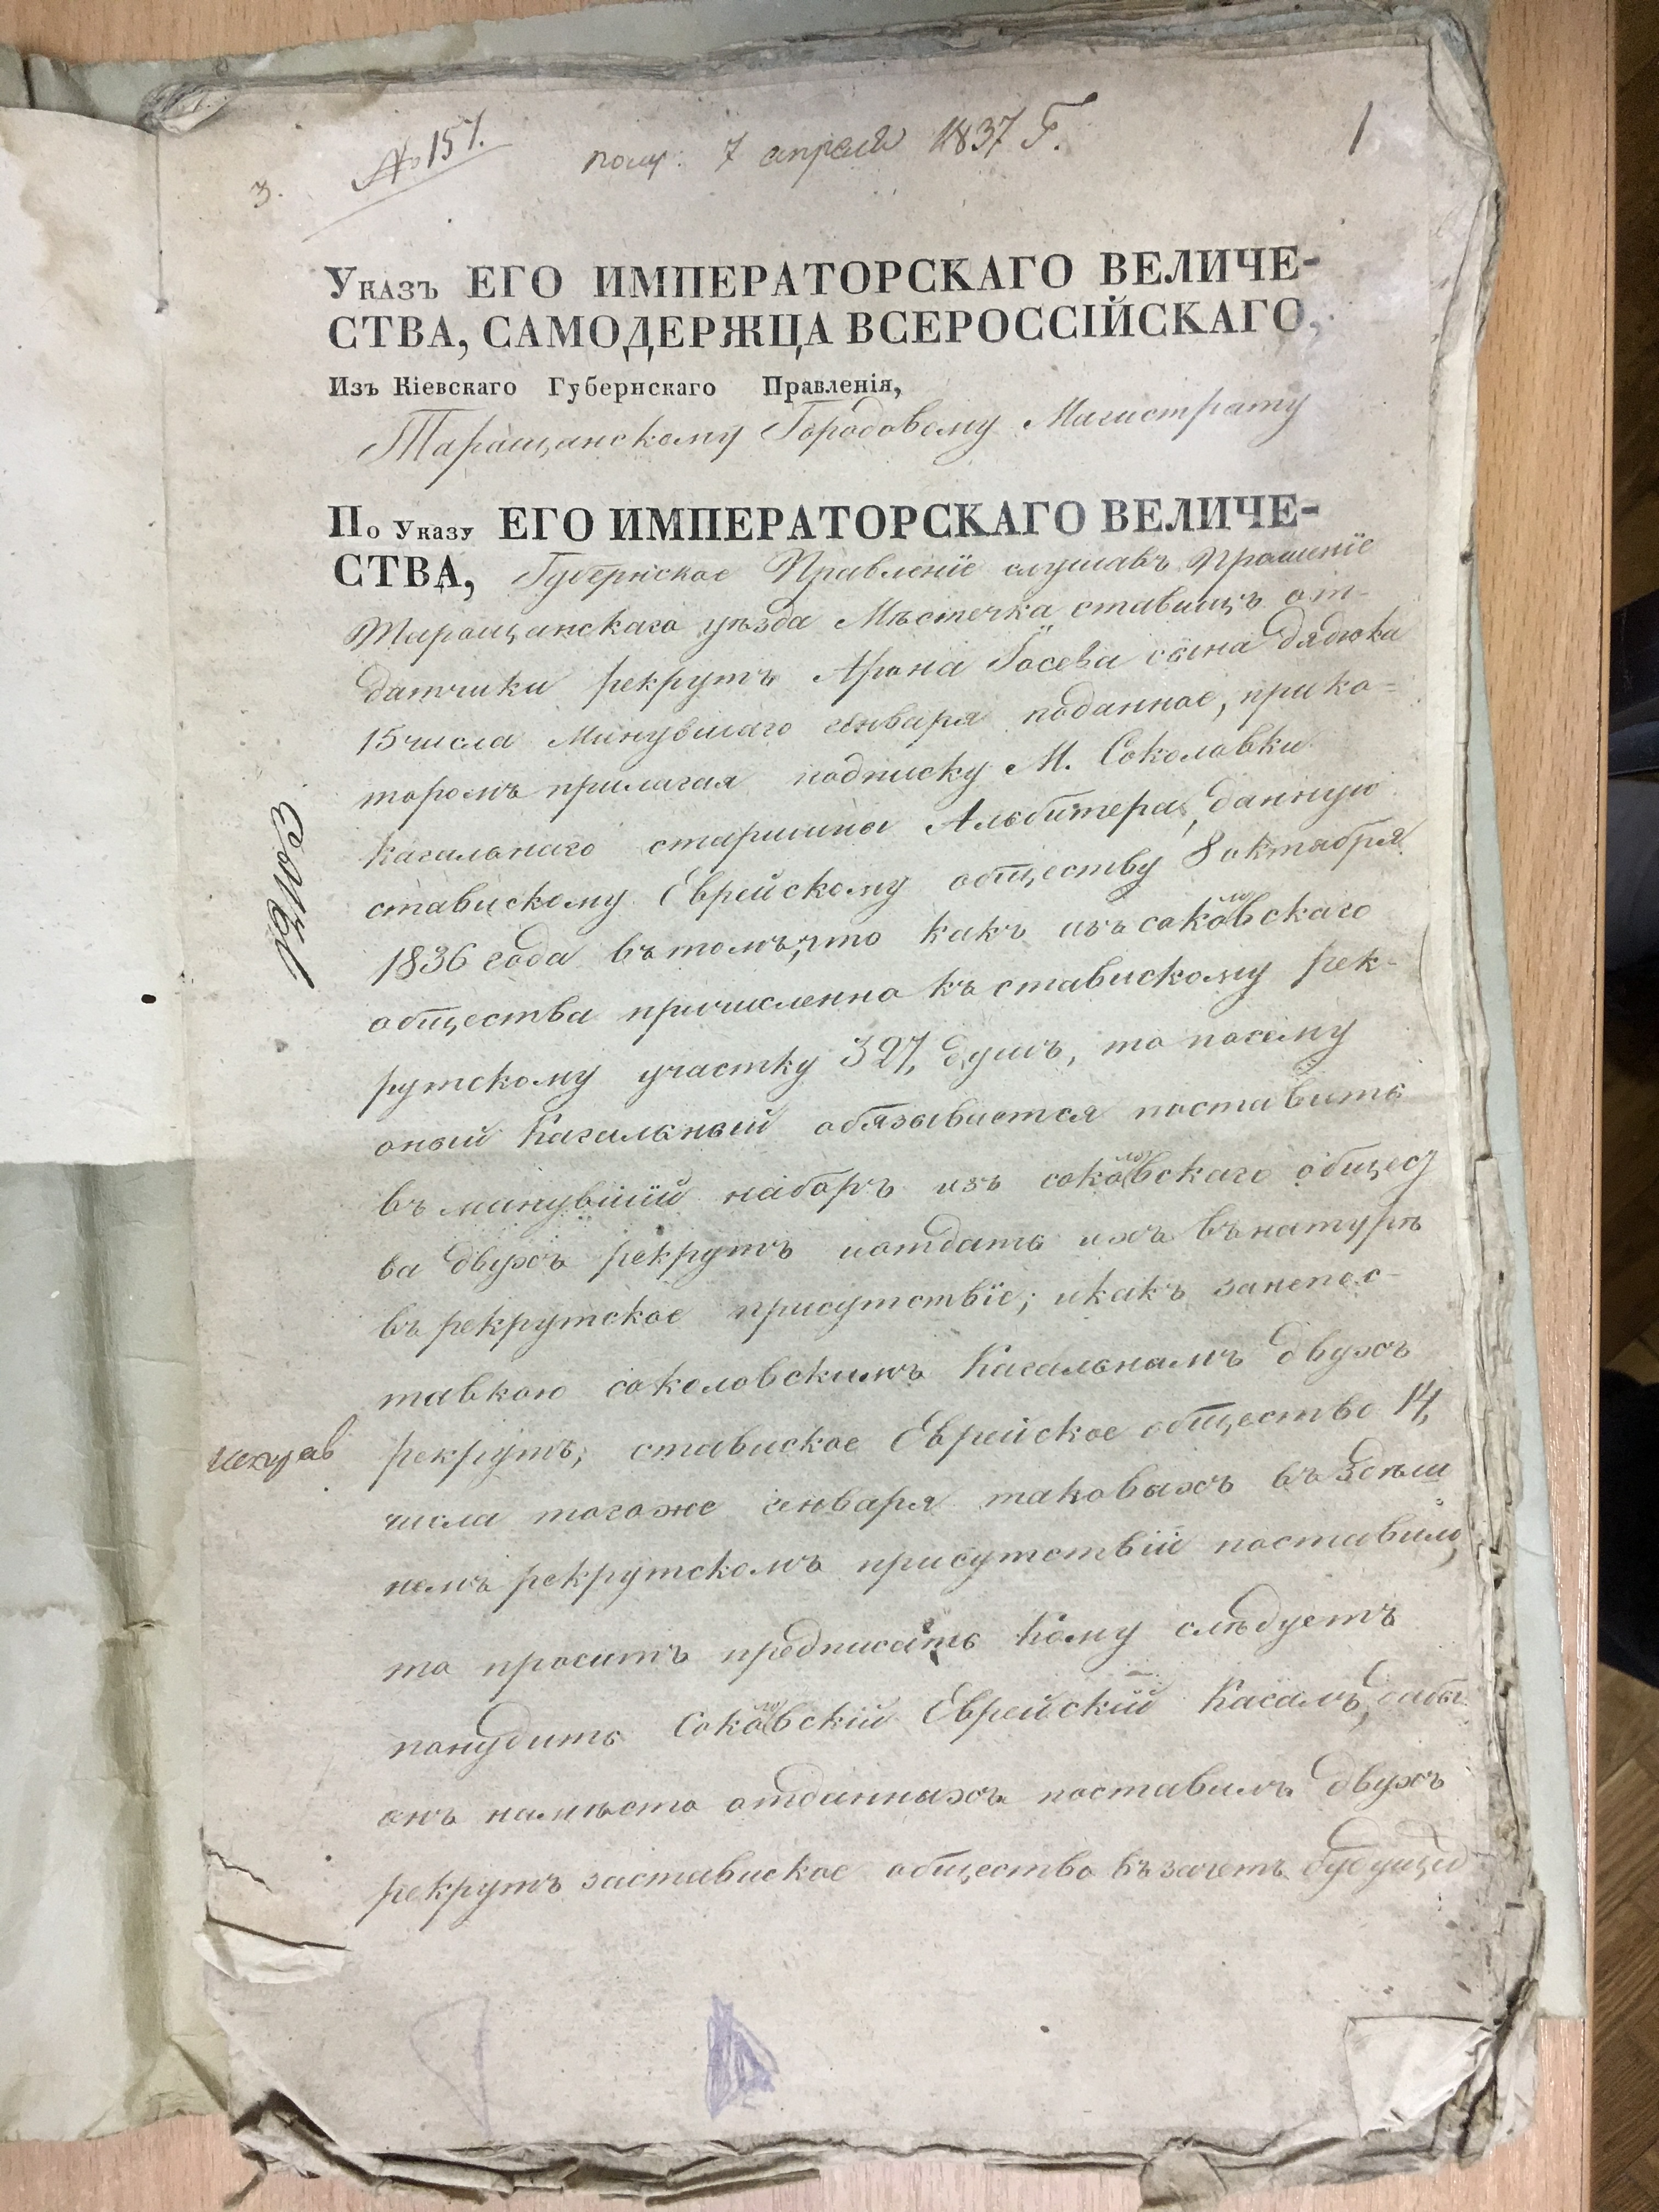 № 151.
пол: 7 апреля 1837 Г.
1
3.
Указъ ЕГО ИМПЕРАТОРСКАГО ВЕЛИЧЕ-
СТВА, САМОДЕРЖЦА ВСЕРОССІЙСКАГО,
Изъ Кіевскаго Губернскаго Правленія,
Таращанскому Городовому Магистрату
По Указу ЕГО ИМПЕРАТОРСКАГО ВЕЛИЧЕ-
СТВА, Губернское Правленіе слушавъ прошеніе
Таращанскаго уѣзда Мѣстечка ставищъ от-
датчика рекрутъ Арона Іосева сына Дядюка
15 числа минувшаго генваря поданное, при ко=
торомъ прилагая подписку М. Соколовки
кагальнаго старшины Альбитера, данную
ставискому Еврейскому обществу 8 октября
1836 года въ томъ, что какъ изъ соколовскаго
общества причисленно къ ставискому рек-
рутскому участку 327, душъ, то посему
оный Кагальный обязывается поставить
въ минувшій наборъ изъ соколовскаго общест
ва двухъ рекрутъ и отдать ихъ въ натурѣ
въ рекрутское присутствіе; и какъ за непос-
тавкою соколовскимъ Кагальнамъ двухъ
рекрутъ, ставиское Еврейское общество 14,
числа того же генваря таковыхъ въ здѣш
немъ рекрутскомъ присутствіи поставило,
то проситъ предписать кому слѣдуетъ
понудить Соколовскій Еврейскій Кагалъ, дабы
онъ намѣсто отданныхъ поставилъ двухъ
рекрутъ за ставиское общество въ зачетъ будущей